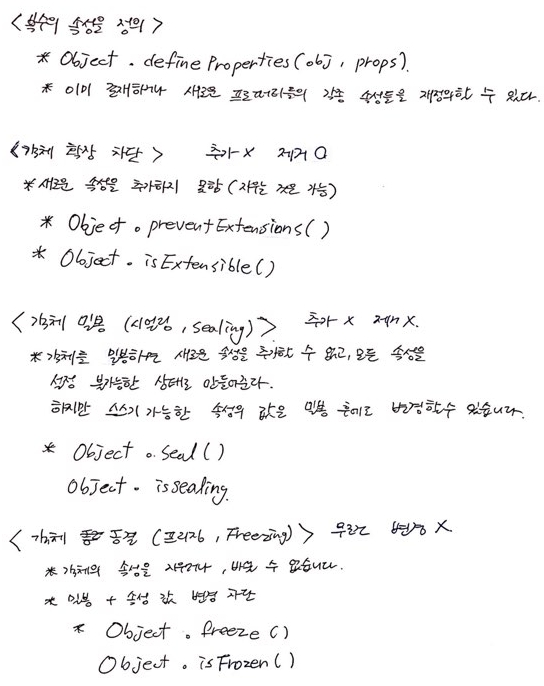 <복수의 속성을 정의>
* Object.defineProperties(obj, props).
* 이미 존재하거나 새로운 프로퍼티들의 각종 속성들을 재정의할 수 있다.
<객체 확장 차단> 추가 X 제거 O
* 새로운 속성을 추가하지 못함 (지우는 것은 가능)
* Object.preventExtensions()
* Object.isExtensible()
<객체 밀봉 (시얼링, sealing)> 추가 X 제거 X.
* 객체를 밀봉하면 새로운 속성을 추가할 수 없고, 모든 속성을
설정 불가능한 상태로 만들어준다.
하지만 쓰기 가능한 속성의 값은 밀봉 후에도 변경할수 있습니다.
* Object.seal()
Object.issealing.
<객체 동결 (프리징, Freezing)> 무조건 변경 X
* 객체의 속성을 지우거나, 바꿀 수 없습니다.
* 밀봉 + 속성 값 변경 차단
* Object.freeze()
Object.isFrozen()